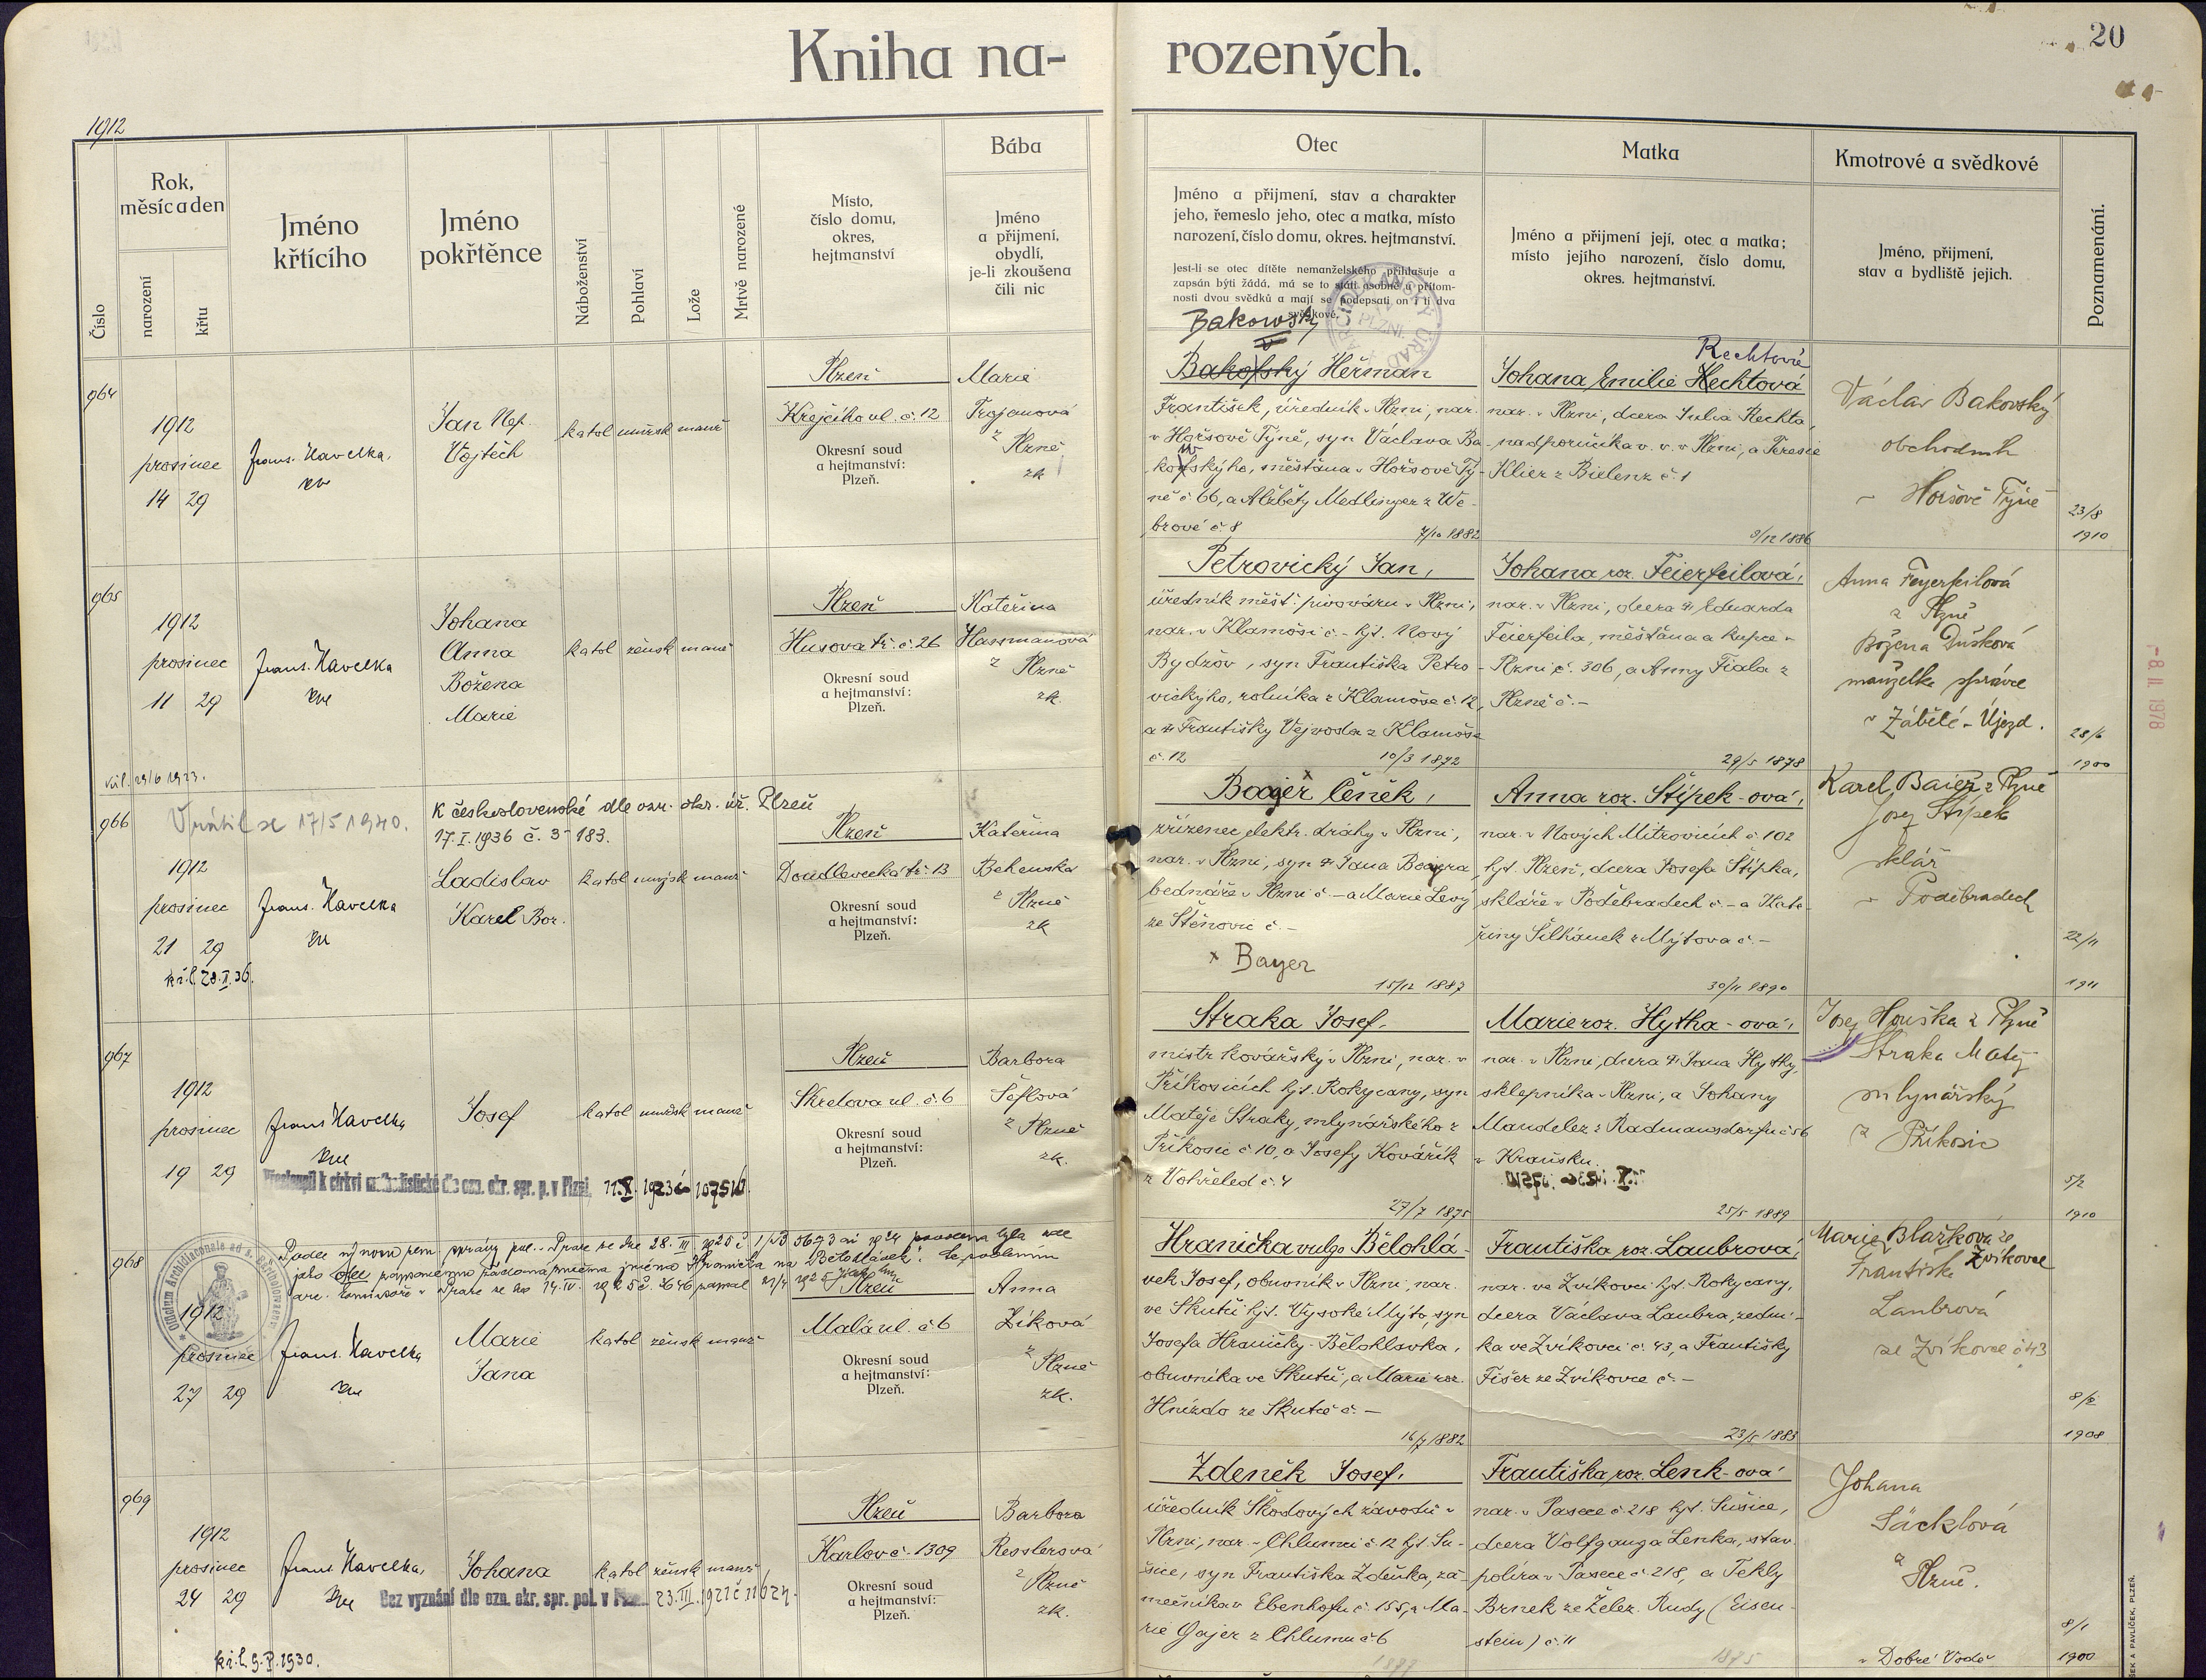 Kniha na-
rozených.
20
1912
Číslo
Rok,
měsíc a den
narození
křtu
Jméno
křtícího
Jméno
pokřtěnce
Náboženství
Pohlaví
Lože
Mrtvě narozené
Místo,
číslo domu,
okres,
hejtmanství
Bába
Jméno
a přijmení,
obydlí,
je-li zkoušena
čili nic
Otec
Jméno a přijmení, stav a charakter
jeho, řemeslo jeho, otec a matka, místo
narození, číslo domu, okres. hejtmanství.
Jest-li se otec dítěte nemanželského přihlašuje a
zapsán býti žádá, má se to státi osobně u přítom-
nosti dvou svědků a mají se podepsati on i ti dva
svědkové.
Matka
Jméno a přijmení její, otec a matka;
místo jejího narození, číslo domu,
okres. hejtmanství.
Kmotrové a svědkové
Jméno, přijmení,
stav a bydliště jejich.
Poznamenání.
964
1912
prosinec
14 29
Frant. Havelka,
Jan Nep.
Vojtěch
katol mužsk manž
Plzeň
Krejčího ul. č. 12
Okresní soud
a hejtmanství:
Plzeň.
Marie
Trojanová
z Plzně
zk
Bakowský
Bakofský Heřman
František, úředník v Plzni, nar.
v Horšově Týně, syn Václava Ba-
kofského, měšťana v Horšově Tý-
ně č 66, a Alžběty Medlinger z We-
brové č 8
7/10 1882
Rechtová
Johana Emilie Hechtová
nar. v Plzni, dcera Julia Rechta,
nadporučíka v. v. v Plzni, a Teresie
Klier z Bielenz č. 1
9/12 1886
Václav Bakovský
obchodník
v Horšově Týně
23/8
1910
965
1912
prosinec
11 29
Frant. Havelka
Johana
Anna
Božena
Marie
katol žensk manž
Plzeň
Husova tř. č. 26
Okresní soud
a hejtmanství:
Plzeň.
Kateřina
Hassmanová
z Plzně
zk.
Petrovický Jan,
úředník měšť. pivováru v Plzni,
nar. v Klamoši č - hjt. Nový
Bydžov, syn Františka Petro-
vického, rolníka z Klamoše č. 12,
a Františky Vejvoda z Klamoše
č. 12
10/3 1872
Johana roz. Feierfeilová,
nar. v Plzni, dcera Eduarda
Feierfeila, měšťana a kupce v
Plzni č. 306, a Anny Fiala z
Plzně č. -
29/5 1878
Anna Feyerfeilová
z Plzně
Božena Dušková
manželka správce
v Zábělé - Újezd.
28/6
1900
-8. II. 1978
966
Vrátil se 17/5 1940.
K československé dle ozn. okr. úř. Plzeň
17. I. 1936 č. 5-183.
1912
prosinec
21 29
kř. l. 28. I. 36.
Frant. Havelka
Ladislav
Karel Bor.
katol mužsk manž
Plzeň
Doudlevecká tř. 13
Okresní soud
a hejtmanství:
Plzeň.
Kateřina
Behenska
z Plzně
zk
Čeněk,
zřízenec elektr. dráhy v Plzni,
bednáře v Plzni č. - a Marie Levý
ze Štěnovic č. -
x Bayer
15/12 1887
Anna roz. Štípek-ová,
nar. v Nových Mitrovicích č 102
hjt. Plzeň, dcera Josefa Štípka,
skláře v Poděbradech č. - a Kate-
řiny Šilhánek z Mýtova č. -
30/11 1890
Karel Baier z Plzně
Josef Štípek
sklář
v Poděbradech
22/11
1911
967
1912
prosinec
19 29
Frant Havelka
Josef
katol mužsk manž
Plzeň
Skretova ul. č. 6
Okresní soud
a hejtmanství:
Plzeň.
Barbora
Šeflová
z Plzně
zk.
Straka Josef.
mistr kovářský v Plzni, nar. v
Příkosicích hjt. Rokycany, syn
Matěje Straky, mlynářského z
Příkosic č 10, a Josefy Kovářík
z Vohřeled č. 4
27/7 1875
Marie roz. Hytha-ová,
nar. v Plzni, dcera Jana Hythy,
sklepníka v Plzni, a Johany
Mandelez z Radmansdorfu č 56
v Kraňsku.
25/5 1889
Josef Houska z Plzně
Straka Matěj
mlynářský
z Příkosic
5/2
1910
968
1912
prosinec
27 29
Frant. Havelka
Marie
Jana
katol žensk manž
Plzeň
Malá ul. č 6
Okresní soud
a hejtmanství:
Plzeň.
Anna
Zíková
z Plzně
zk.
Hranička vulgo Bělohlá-
vek Josef, obuvník v Plzni, nar.
ve Skutči hjt. Vysoké Mýto, syn
Josefa Hraničky-Bělohlavka,
obuvníka ve Skutči, a Marie roz.
Hnízdo ze Skutče č. -
16/7 1882
Františka roz. Laubrová,
nar. ve Zvíkovci hjt. Rokycany,
dcera Václava Laubra, zední-
ka ve Zvíkovci č. 43, a Františky
Fišer ze Zvíkovce č. -
23/5 1883
Marie Blažková ze
Zvíkovce
Františk
Laubrová
ze Zvíkovce č 43
8/2
1908
969
1912
prosinec
24 29
kř. l. 9. I. 1930.
Frant. Havelka,
Johana
katol žensk manž
Bez vyznání dle ozn. okr. spr. pol. v Plzni
Plzeň
Karlov č. 1309
Okresní soud
a hejtmanství:
Plzeň.
Barbora
Resslerová
z Plzně
zk.
Zdeněk Josef,
úředník Škodových závodů v
Plzni, nar. v Chlumci č. 12 hjt. Su-
šice, syn Františka Zdeňka, zá-
mečníka v Ebenhofu č. 155, a Ma-
rie Gajer z Chlumu č 6
Františka roz. Lenk-ová
nar. v Pasece č 218 hjt. Sušice,
dcera Volfganga Lenka, stav.
políra v Pasece č 218, a Tekly
Brnek ze Želez. Rudy (Eisen-
stein) č. 11
1875
Johana
Säcklová
z Plzně.
v Dobré Vodě
8/1
1900